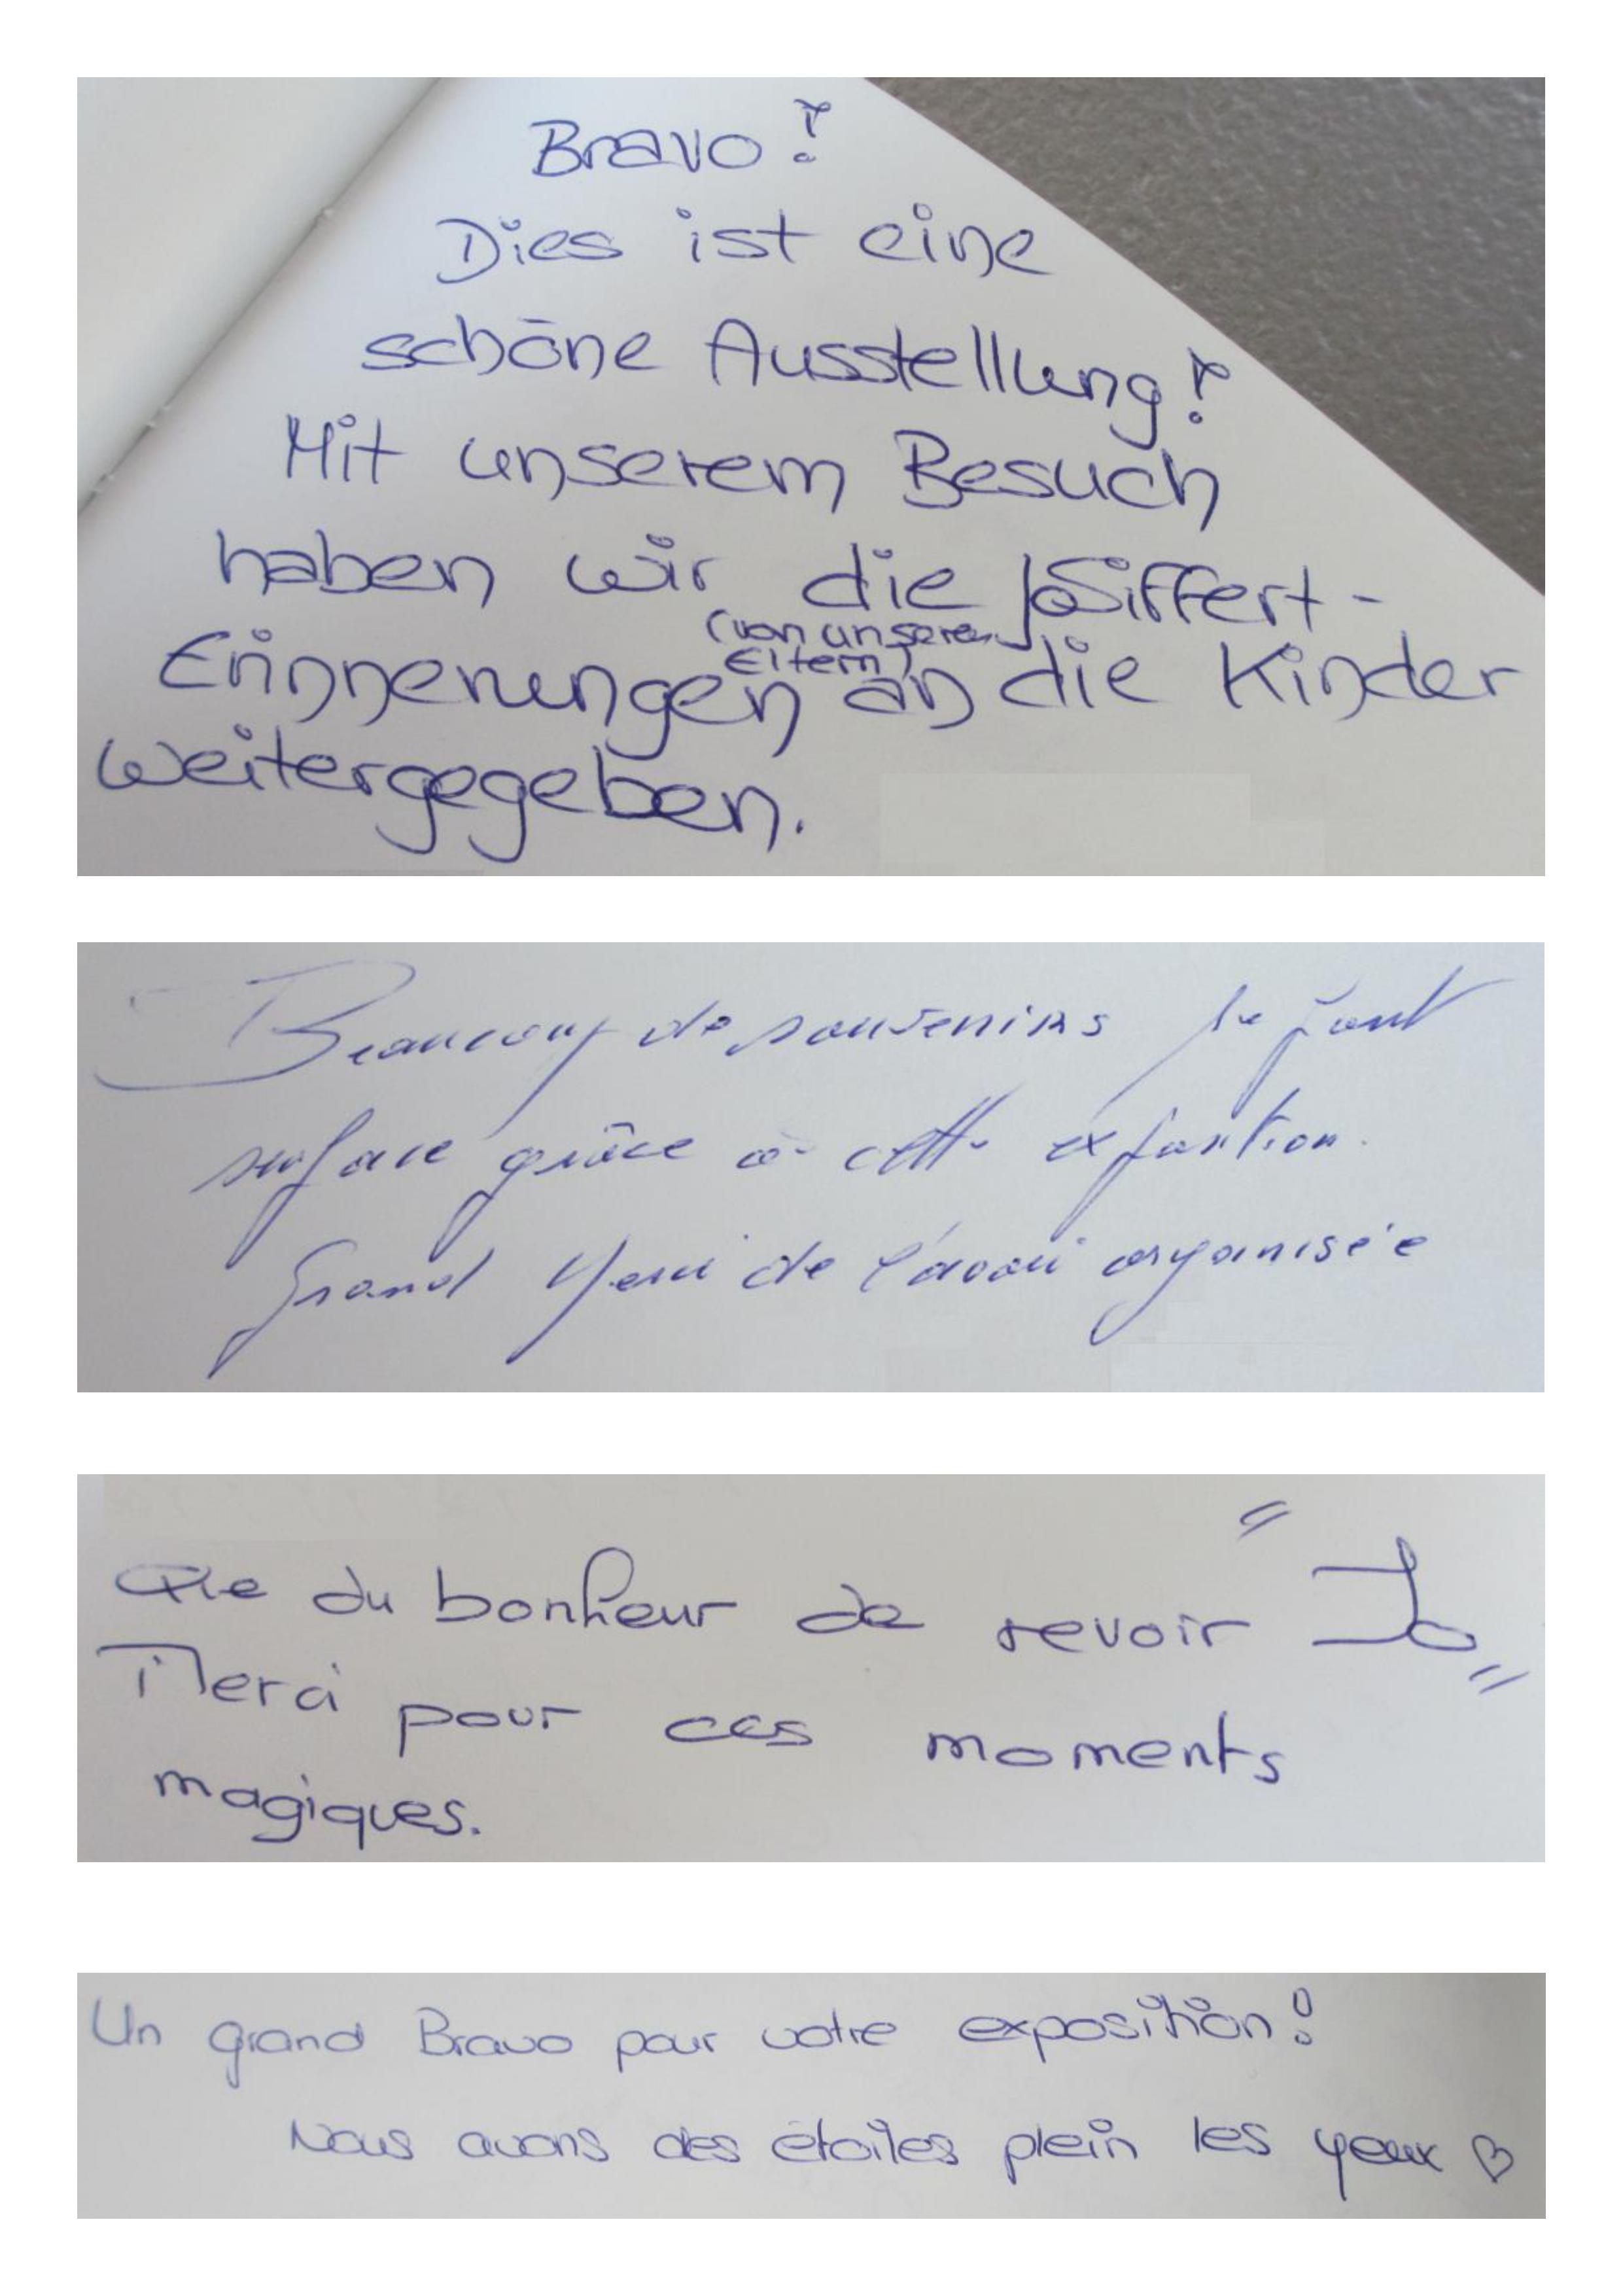 Bravo!
Dies ist eine
schöne Ausstellung!
Mit unserem Besuch
haben wir die Jo Siffert-
(von unseren
Eltern)
Erinnerungen an die Kinder
weitergegeben.
Beaucoup de souvenirs se font
surface grâce à cette exposition.
Grand Merci de l'avoir organisée
Que du bonheur de revoir "Jo"
Merci pour ces moments
magiques.
Un grand Bravo pour votre exposition!
Nous avons des étoiles plein les yeux ♡